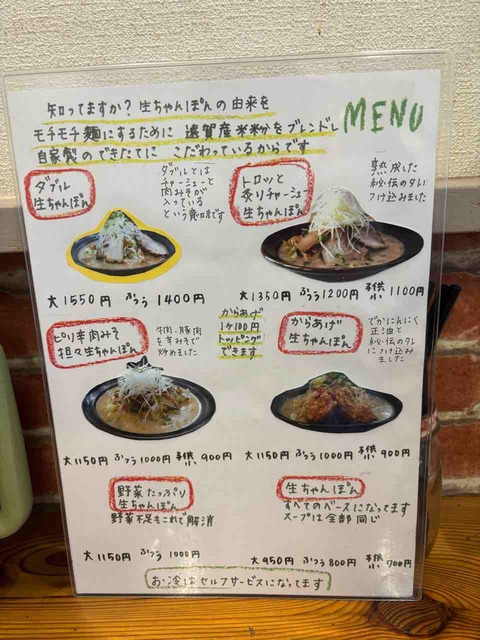 知ってますか？生ちゃんぽんの由来を
モチモチ麺にするために 遠賀産米粉をブレンドし
自家製のできたてに こだわっているからです
MENU
ダブル
生ちゃんぽん
ダブルとは
チャーシューと
肉みそが
入っている
という意味です
トロッと
炙りチャーシュー
生ちゃんぽん
熟成した
秘伝のタレに
つけ込みました
大1550円 ふつう1400円
大1350円 ふつう1200円 子供1100円
ピリ辛肉みそ
担々生ちゃんぽん
牛肉、豚肉
を辛みそで
炒めました
からあげ
1ケ100円
トッピング
できます
からあげ
生ちゃんぽん
でかにんにく
正油と
秘伝のタレ
につけ込み
ました
大1150円 ふつう1000円 子供900円
大1150円 ふつう1000円 子供900円
野菜たっぷり
生ちゃんぽん
野菜不足もこれで解消
生ちゃんぽん
すべてのベースになってます
スープは全部同じ
大1150円 ふつう1000円
大950円 ふつう800円 子供700円
お冷はセルフサービスになってます